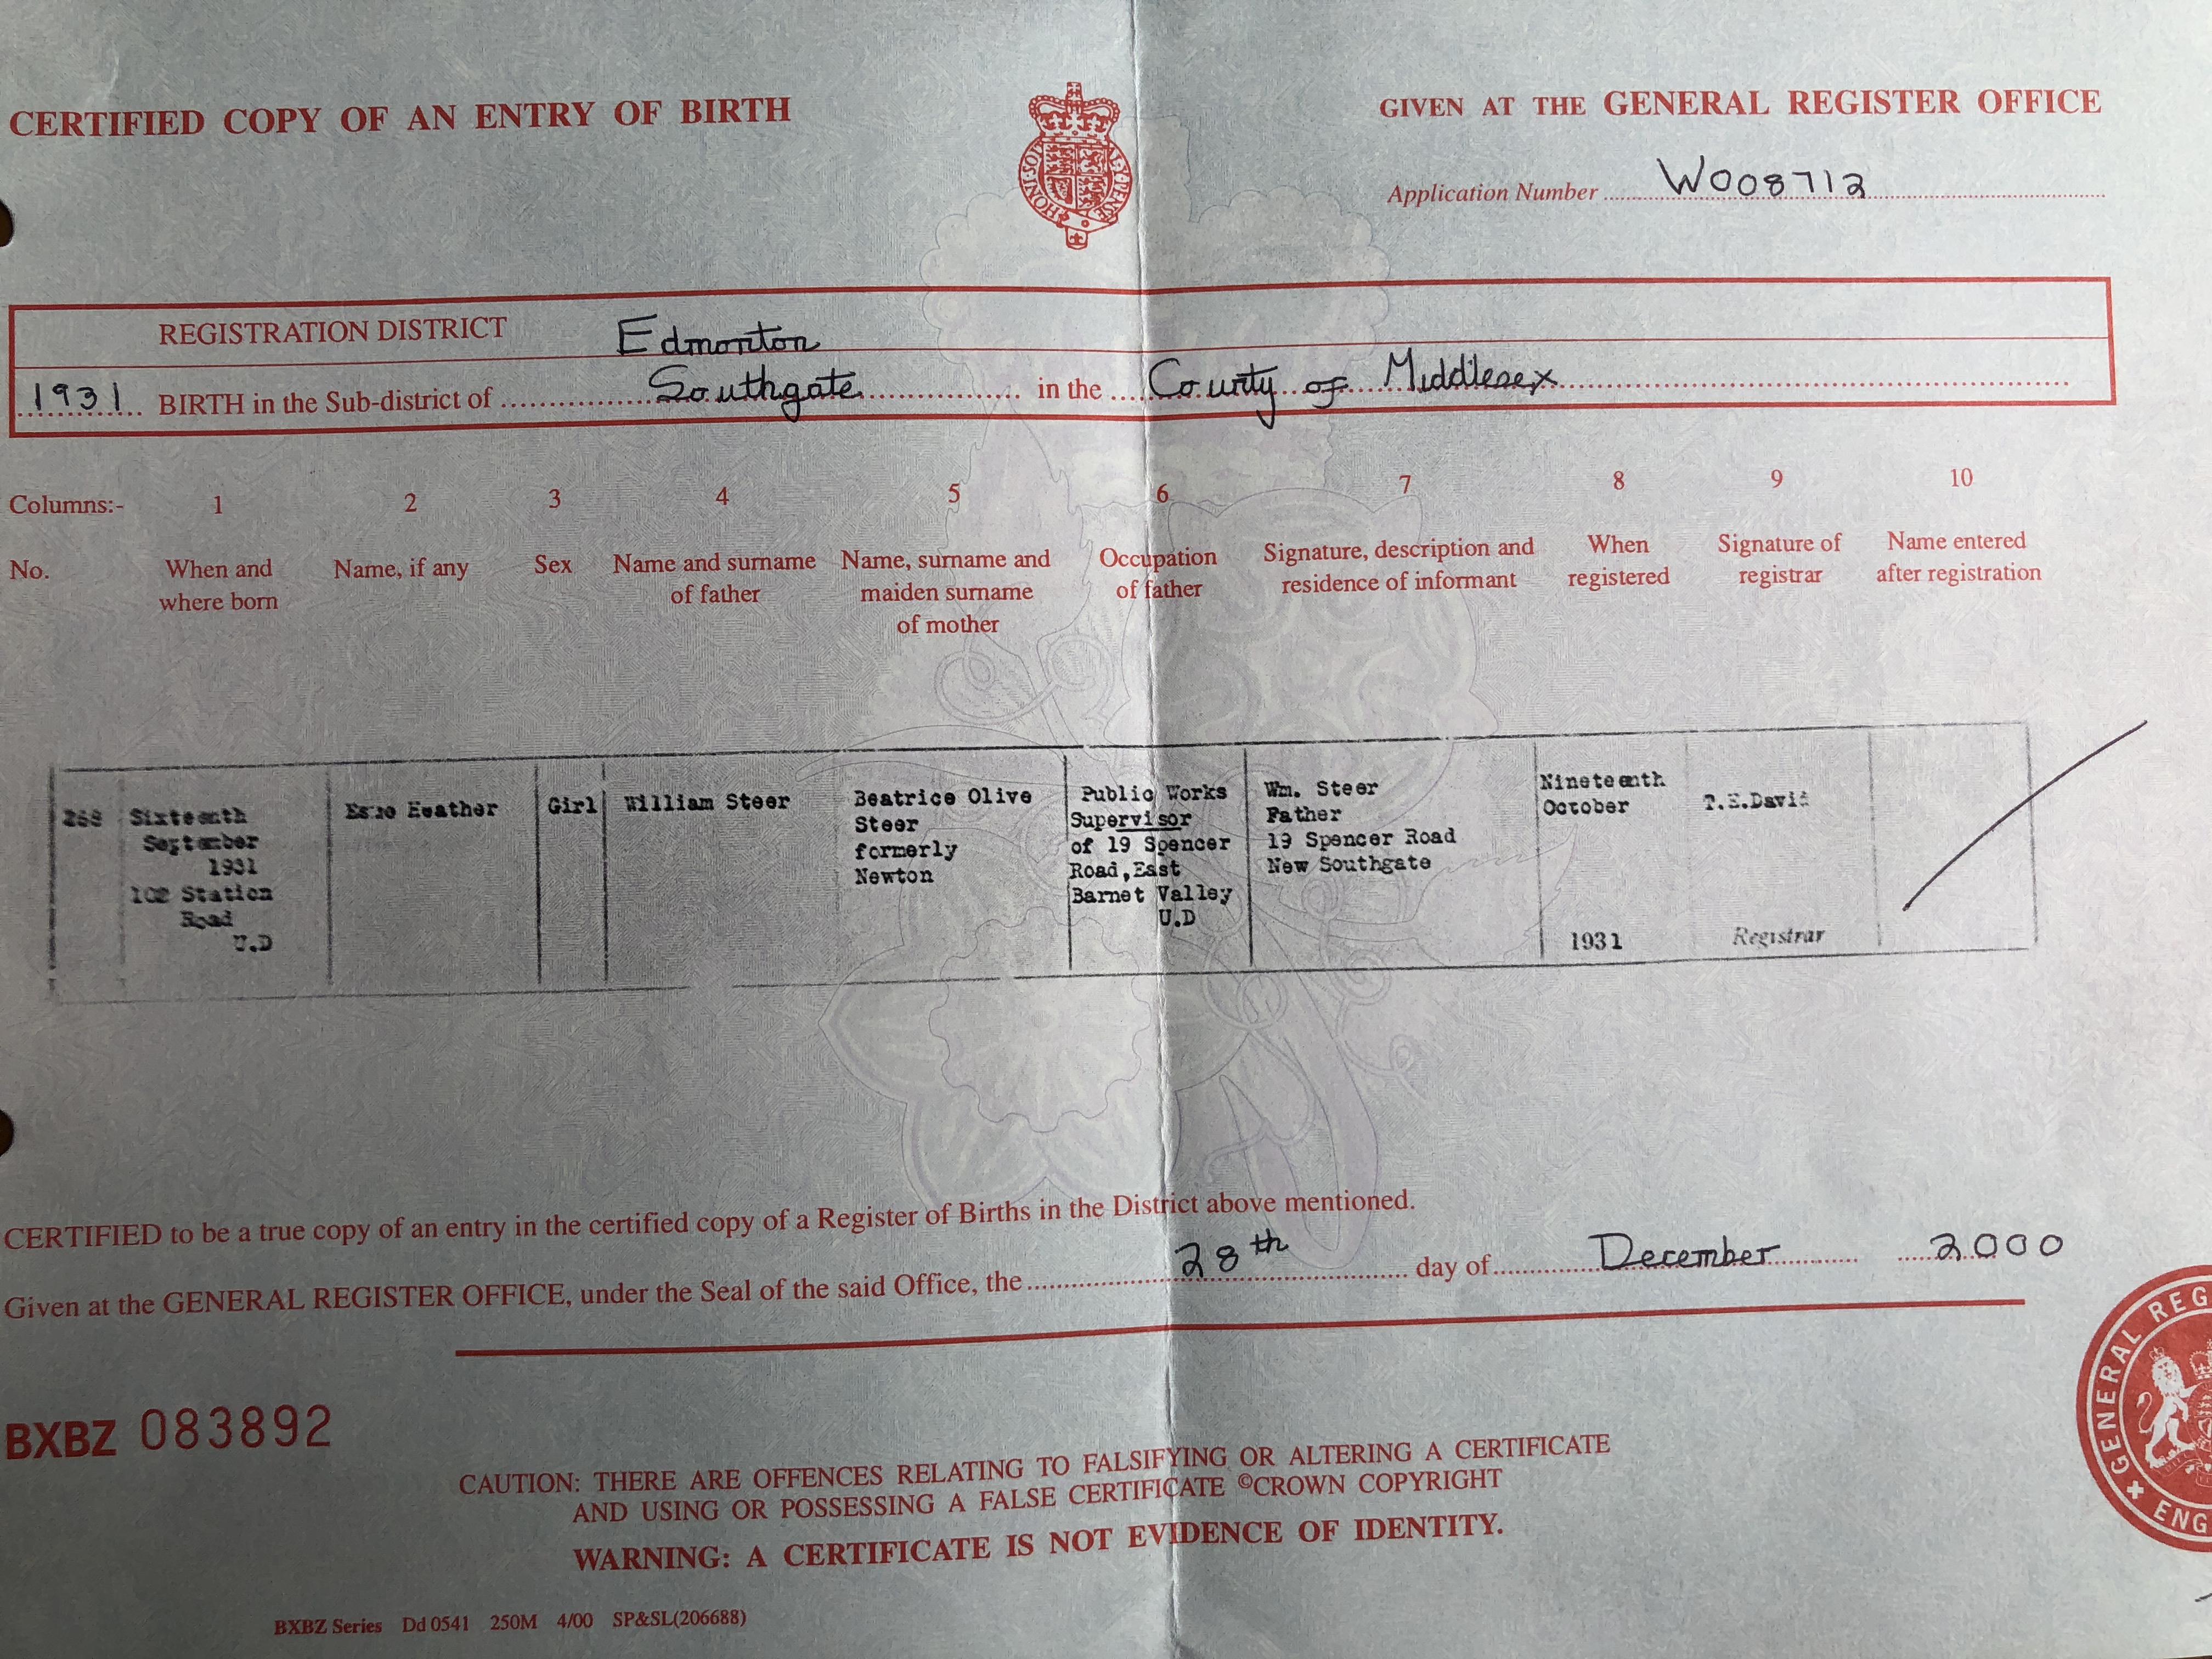 CERTIFIED COPY OF AN ENTRY OF BIRTH
GIVEN AT THE GENERAL REGISTER OFFICE
HONI·SOIT
Application Number W008712
REGISTRATION DISTRICT Edmonton
1931 BIRTH in the Sub-district of Southgate in the County of Middlesex
Columns:- 1 2 3 4 5 6 7 8 9 10
No.
When and
where born
Name, if any
Sex
Name and surname
of father
Name, surname and
maiden surname
of mother
Occupation
of father
Signature, description and
residence of informant
When
registered
Signature of
registrar
Name entered
after registration
268
Sixteenth
September
1931
102 Station
Road
U.D
Heather
Girl
William Steer
Beatrice Olive
Steer
formerly
Newton
Public Works
Supervisor
of 19 Spencer
Road, East
Barnet Valley
U.D
Wm. Steer
Father
19 Spencer Road
New Southgate
Nineteenth
October
1931
T.E.David
Registrar
CERTIFIED to be a true copy of an entry in the certified copy of a Register of Births in the District above mentioned.
Given at the GENERAL REGISTER OFFICE, under the Seal of the said Office, the 28th day of December 2000
BXBZ 083892
GENERAL REG
ENG
CAUTION: THERE ARE OFFENCES RELATING TO FALSIFYING OR ALTERING A CERTIFICATE
AND USING OR POSSESSING A FALSE CERTIFICATE ©CROWN COPYRIGHT
WARNING: A CERTIFICATE IS NOT EVIDENCE OF IDENTITY.
BXBZ Series Dd 0541 250M 4/00 SP&SL(206688)